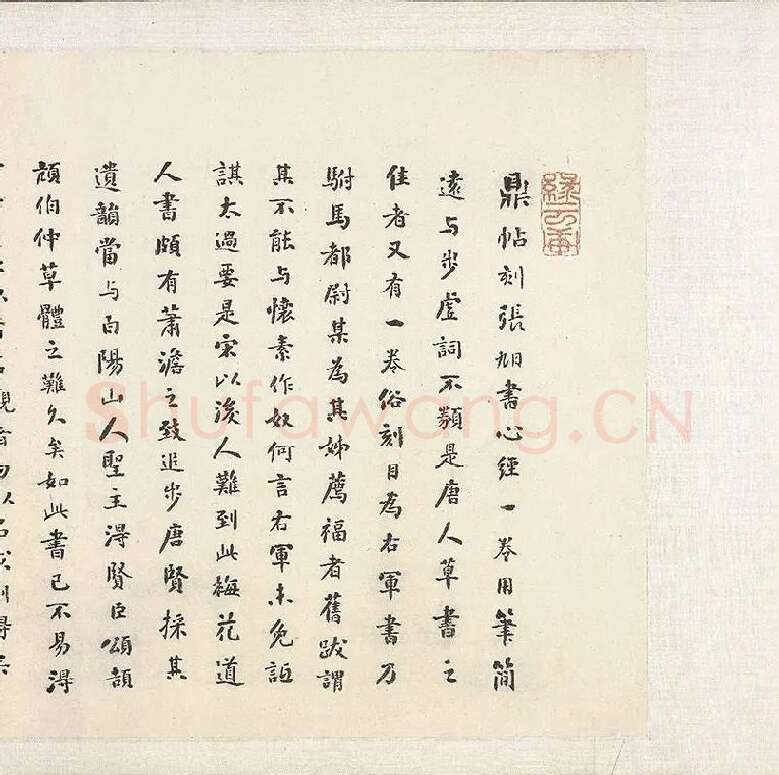 鼎帖刻張旭書心經一卷用筆簡
遠与步虛詞不類是唐人草書之
佳者又有一卷俗刻目為右軍書乃
駙馬都尉某為其姊薦福者舊跋謂
其不能与懷素作奴何言右軍未免詆
諆太過要是宋以後人難到此梅花道
人書頗有蕭澹之致追步唐賢採其
遺韻當与白陽山人聖主得賢臣頌頡
頏伯仲草體之難久矣如此書已不易得
Shufawang.CN